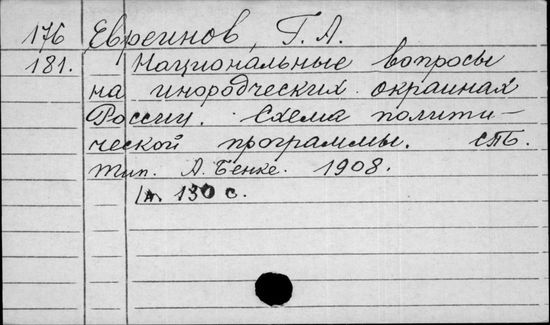 176 Евреинов, Г. А.
181. Национальные вопросы
на инородческих окраинах
России. Схема полити-
ческой программы. СПБ.
тип. А. Бенке. 1908.
130 с.